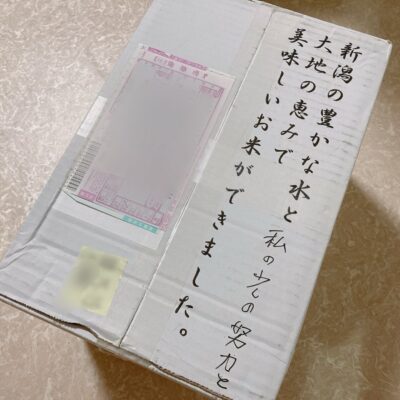 新潟の豊かな水と
私の少の努力と
大地の恵みで
美味しいお米ができました。